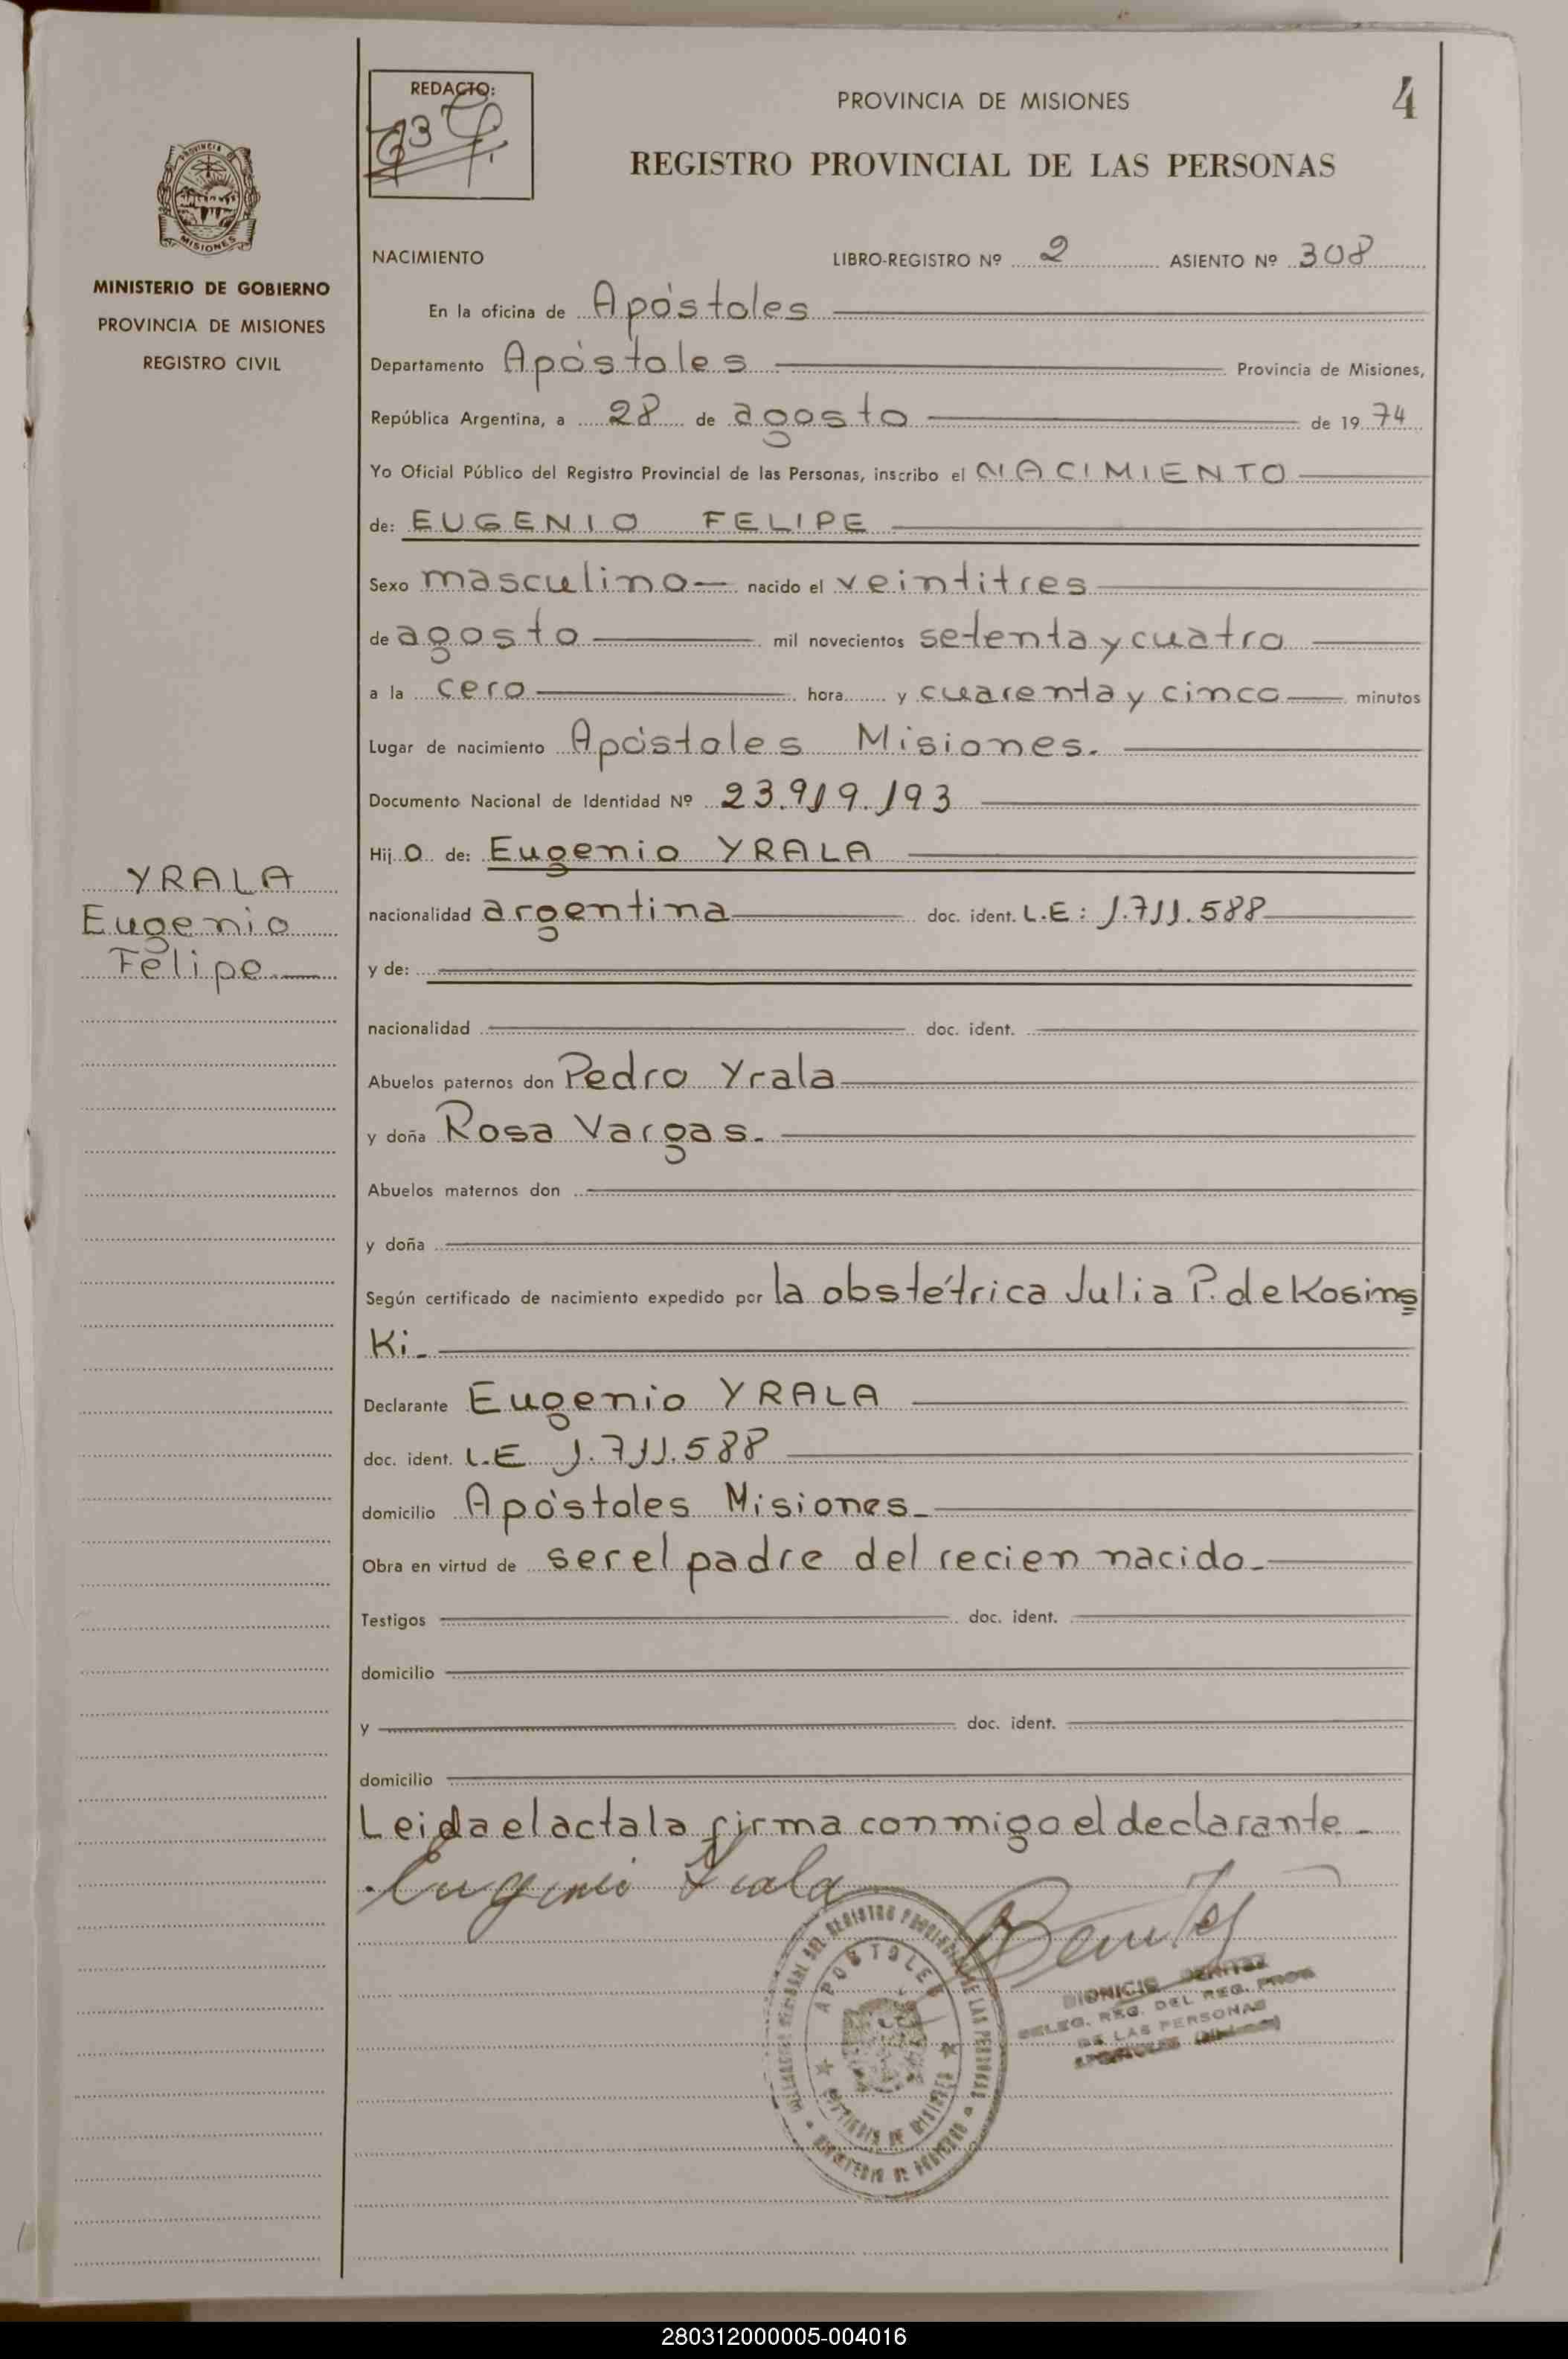 REDACTO:
PROVINCIA DE MISIONES
4
REGISTRO PROVINCIAL DE LAS PERSONAS
PROVINCIA DE
MISIONES
MINISTERIO DE GOBIERNO
PROVINCIA DE MISIONES
REGISTRO CIVIL
NACIMIENTO LIBRO-REGISTRO Nº 2 ASIENTO Nº 308
En la oficina de Apóstoles
Departamento Apóstoles Provincia de Misiones,
República Argentina, a 28 de agosto de 1974
Yo Oficial Público del Registro Provincial de las Personas, inscribo el NACIMIENTO
de: EUGENIO FELIPE
Sexo masculino nacido el veintitres
de agosto mil novecientos setenta y cuatro
a la cero hora y cuarenta y cinco minutos
Lugar de nacimiento Apóstoles Misiones.
Documento Nacional de Identidad Nº 23.919.193
Hijo de: Eugenio YRALA
YRALA
Eugenio
Felipe
nacionalidad argentina doc. ident. L.E: 1.711.588
y de:
nacionalidad doc. ident.
Abuelos paternos don Pedro Yrala
y doña Rosa Vargas.
Abuelos maternos don
y doña
Según certificado de nacimiento expedido por la obstétrica Julia P. de Kosins
Ki.
Declarante Eugenio YRALA
doc. ident. L.E 1.711.588
domicilio Apóstoles Misiones
Obra en virtud de ser el padre del recien nacido
Testigos doc. ident.
domicilio
y doc. ident.
domicilio
Leida el acta la firma conmigo el declarante
Eugenio Irala
Benitez
APOSTOLES
DIONICIO BENITEZ
DELEG. REG. DEL REG. PROV.
DE LAS PERSONAS
280312000005-004016